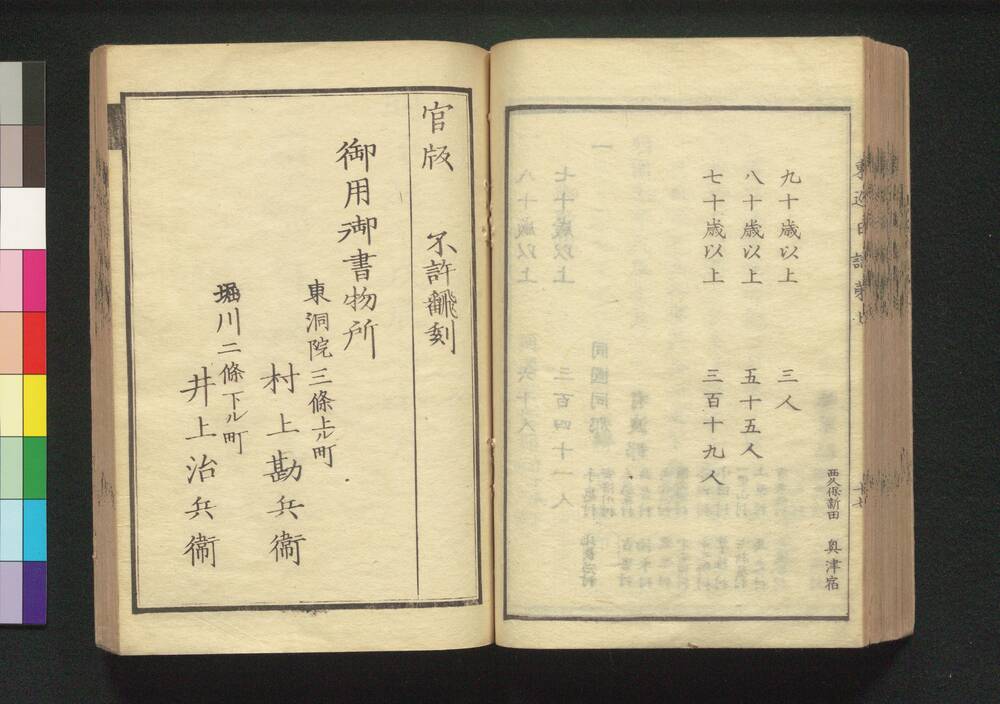 西久保新田 奥津宿
九十歳以上 三人
八十歳以上 五十五人
七十歳以上 三百十九人
官版 不許飜刻
御用御書物所
東洞院三條上ル町
村上勘兵衞
堀川二條下ル町
井上治兵衞